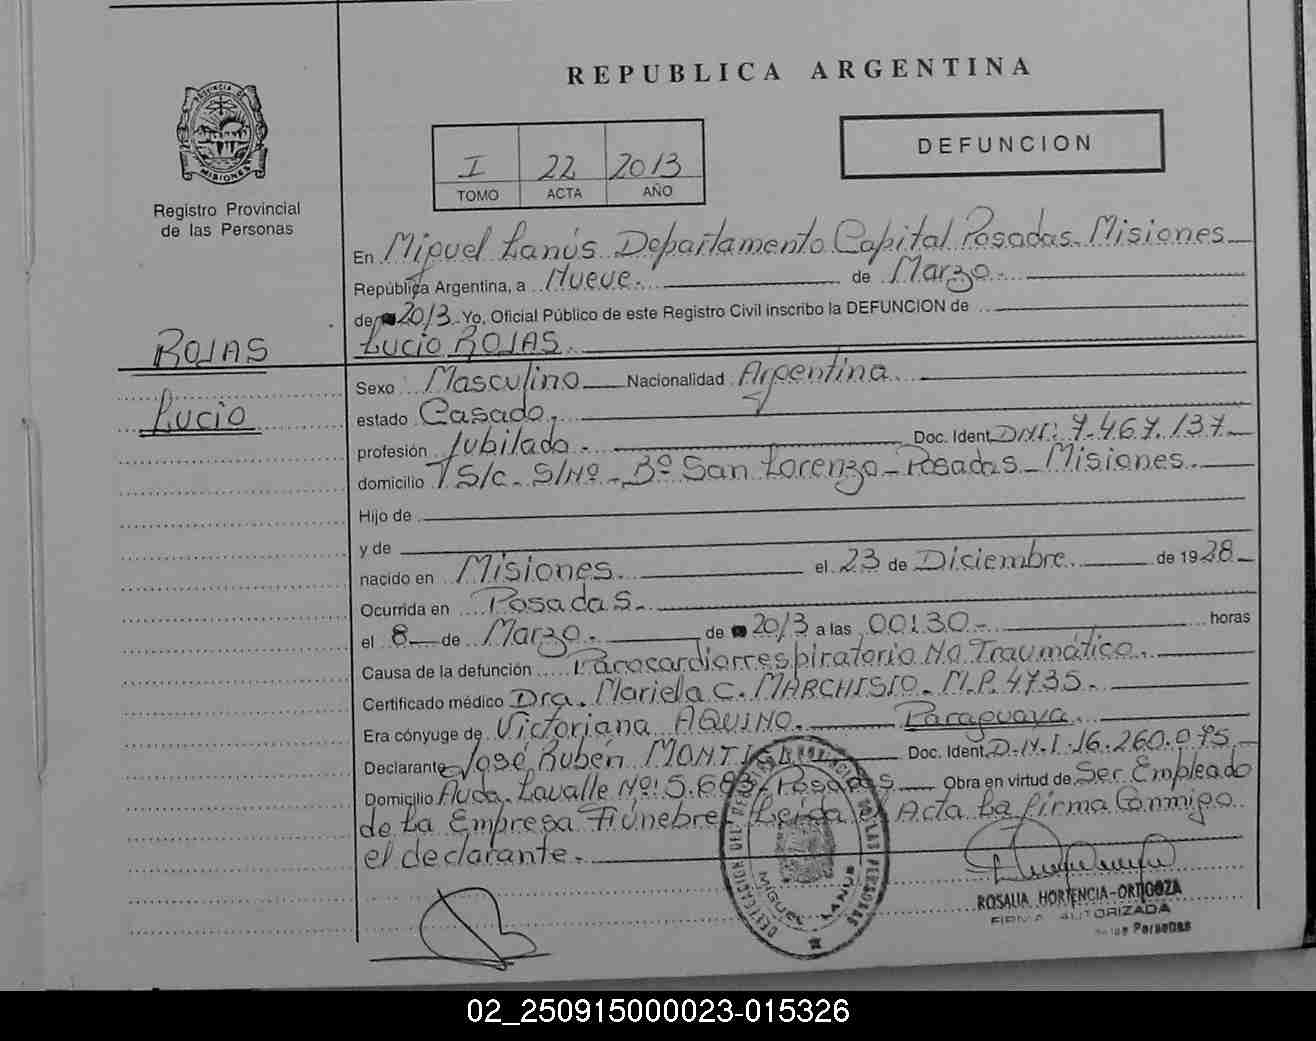 REPUBLICA ARGENTINA
PROVINCIA DE
MISIONES
Registro Provincial
de las Personas
I 22 2013
TOMO ACTA AÑO
DEFUNCION
En Miguel Lanús Departamento Capital Posadas. Misiones
República Argentina, a Nueve. de Marzo.
de 2013. Yo, Oficial Público de este Registro Civil inscribo la DEFUNCION de
Lucio ROJAS.
ROJAS
Lucio
Sexo Masculino Nacionalidad Argentina.
estado Casado.
profesión Jubilado. Doc. Ident. DNI: 7.467.137
domicilio S/c. S/Nº. Bº San Lorenzo Posadas Misiones.
Hijo de
y de
nacido en Misiones. el 23 de Diciembre. de 1928
Ocurrida en Posadas.
el 8 de Marzo. de 2013 a las 00:30 horas
Causa de la defunción Paracardiorrespiratorio No Traumático.
Certificado médico Dra. Mariela C. MARCHISIO. M.P. 4735.
Era cónyuge de Victoriana AQUINO. Paraguaya.
Declarante José Rubén Doc. Ident. D.N.I. 16.260.075
Domicilio Avda. Lavalle Nº: Posadas Obra en virtud de Ser Empleado
de La Empresa Fúnebre. Leída el Acta La firma Conmigo
el declarante.
MIGUEL LANUS
ROSALIA HORTENCIA ORTIGOZA
FIRMA AUTORIZADA
de las Personas
02_250915000023-015326